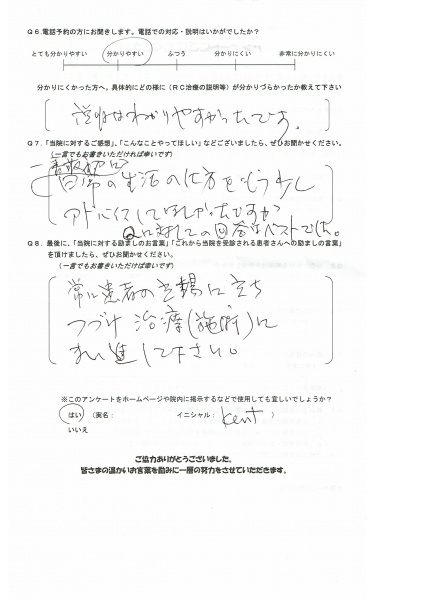 Q6.電話予約の方にお聞きします。電話での対応・説明はいかがでしたか?
とても分かりやすい 分かりやすい ふつう 分かりにくい 非常に分かりにくい
分かりにくかった方へ。具体的にどの様に(RC治療の説明等)が分かりづらかったか教えて下さい
説明はわかりやすかったです。
Q7.「当院に対するご感想」、「こんなことやってほしい」などございましたら、ぜひお聞かせください。
(一言でもお書きいただければ幸いです)
日常の生活の仕方をもう少し
アドバイスしてほしかったですが
に対しての回答はベストでした。
Q8.最後に、「当院に対する励ましのお言葉」「これから当院を受診される患者さんへの励ましの言葉」
を頂けましたら、ぜひお聞かせください。
(一言でもお書きいただけば幸いです)
常に患者の立場に立ち
つづけ 治療(施術)に
まい進して下さい。
※このアンケートをホームページや院内に掲示するなどで使用しても宜しいでしょうか?
はい (実名: イニシャル: Kent )
いいえ
ご協力ありがとうございました。
皆さまの温かいお言葉を励みに一層の努力をさせていただきます。